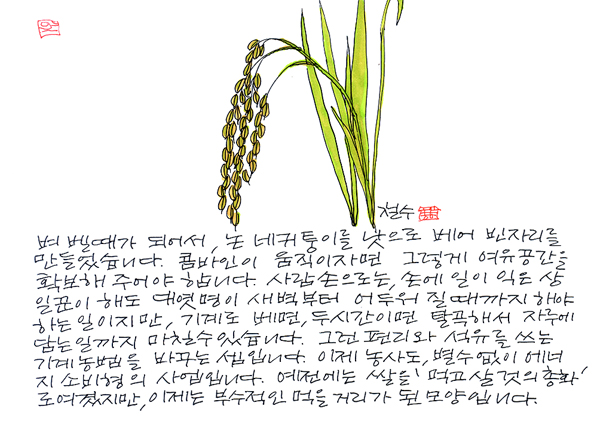 철수
벼 벨때가 되어서, 논 네귀퉁이를 낫으로 베어 빈자리를
만들었습니다. 콤바인이 움직이자면 그렇게 여유공간을
확보해 주어야 합니다. 사람손으로는, 손에 일이 익은 상
일꾼이 해도 대엿명이 새벽부터 어두워 질때까지 하야
하는일이지만, 기계로 베면, 두시간이면 탈곡해서 자루에
담는일까지 마칠수있습니다. 그런 편리와 석유를 쓰는
기계농법을 바꾸는 셈입니다. 이제 농사도, 별수없이 에너
지 소비형의 사업입니다. 예전에는 쌀을 '먹고 살 것의 총화'
로여겼지만, 이제는 부수적인 먹을거리가 된 모양입니다.